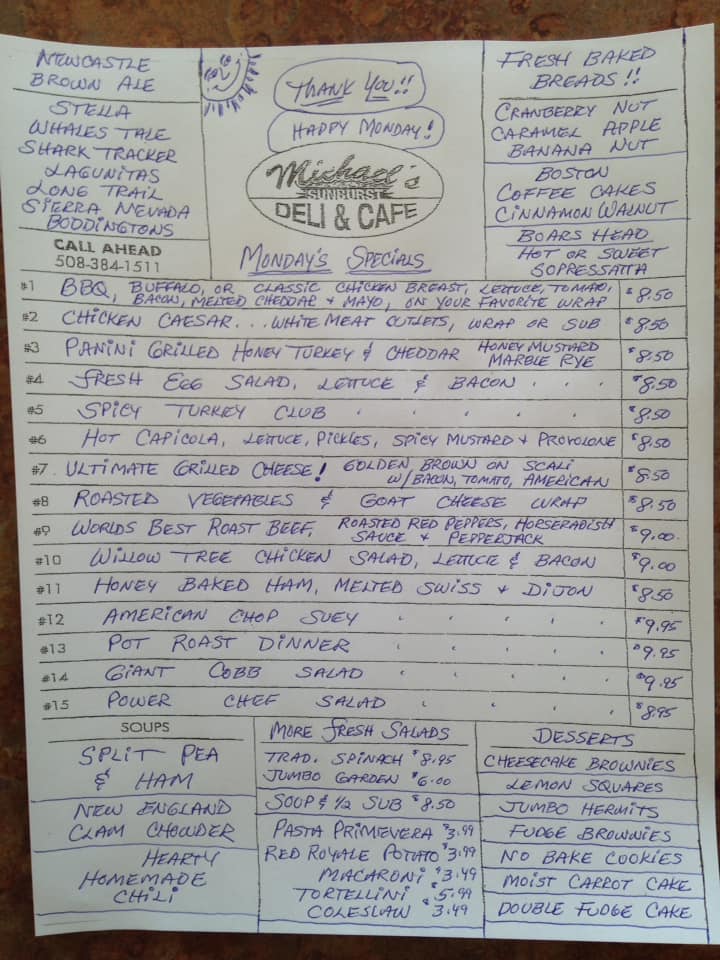 NEWCASTLE
BROWN ALE
STELLA
WHALES TALE
SHARK TRACKER
LAGUNITAS
LONG TRAIL
SIERRA NEVADA
BODDINGTONS
CALL AHEAD
508-384-1511
THANK YOU!!
HAPPY MONDAY!
Michael's
SUNBURST
DELI & CAFE
MONDAY'S SPECIALS
FRESH BAKED
BREADS!!
CRANBERRY NUT
CARAMEL APPLE
BANANA NUT
BOSTON
COFFEE CAKES
CINNAMON WALNUT
BOARS HEAD
HOT OR SWEET
SOPRESSATTA
#1 BBQ, BUFFALO, OR CLASSIC CHICKEN BREAST, LETTUCE, TOMATO,
BACON, MELTED CHEDDAR & MAYO, ON YOUR FAVORITE WRAP $8.50
#2 CHICKEN CAESAR... WHITE MEAT CUTLETS, WRAP OR SUB $8.50
#3 PANINI GRILLED HONEY TURKEY & CHEDDAR HONEY MUSTARD
MARBLE RYE $8.50
#4 FRESH EGG SALAD, LETTUCE & BACON . . . $8.50
#5 SPICY TURKEY CLUB . . . . . $8.50
#6 HOT CAPICOLA, LETTUCE, PICKLES, SPICY MUSTARD & PROVOLONE $8.50
#7 ULTIMATE GRILLED CHEESE! GOLDEN BROWN ON SCALI
W/BACON, TOMATO, AMERICAN $8.50
#8 ROASTED VEGETABLES & GOAT CHEESE WRAP $8.50
#9 WORLDS BEST ROAST BEEF, ROASTED RED PEPPERS, HORSERADISH
SAUCE & PEPPERJACK $9.00
#10 WILLOW TREE CHICKEN SALAD, LETTUCE & BACON $9.00
#11 HONEY BAKED HAM, MELTED SWISS & DIJON $8.50
#12 AMERICAN CHOP SUEY . . . . . $9.95
#13 POT ROAST DINNER . . . . . $9.95
#14 GIANT COBB SALAD . . . . . $9.95
#15 POWER CHEF SALAD . . . . . $8.95
SOUPS
SPLIT PEA
& HAM
NEW ENGLAND
CLAM CHOWDER
HEARTY
HOMEMADE
CHILI
MORE FRESH SALADS
TRAD. SPINACH $8.95
JUMBO GARDEN $6.00
SOUP & 1/2 SUB $8.50
PASTA PRIMEVERA $3.99
RED ROYALE POTATO $3.99
MACARONI $3.49
TORTELLINI $5.99
COLESLAW $3.49
DESSERTS
CHEESECAKE BROWNIES
LEMON SQUARES
JUMBO HERMITS
FUDGE BROWNIES
NO BAKE COOKIES
MOIST CARROT CAKE
DOUBLE FUDGE CAKE